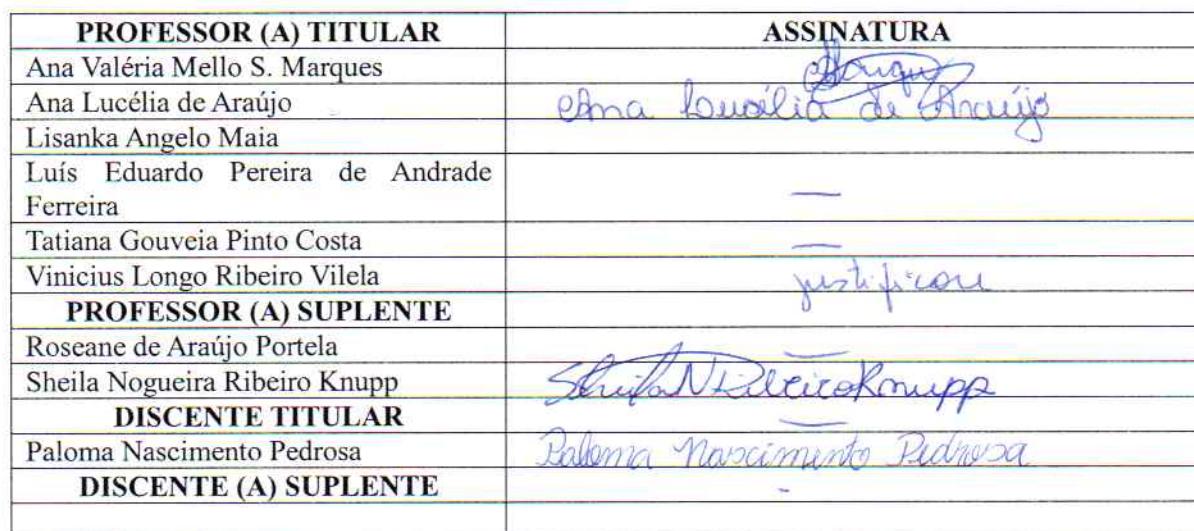 PROFESSOR (A) TITULAR ASSINATURA
Ana Valéria Mello S. Marques
Ana Lucélia de Araújo Ana Lucélia de Araújo
Lisanka Angelo Maia
Luís Eduardo Pereira de Andrade
Ferreira —
Tatiana Gouveia Pinto Costa —
Vinicius Longo Ribeiro Vilela justificou
PROFESSOR (A) SUPLENTE
Roseane de Araújo Portela —
Sheila Nogueira Ribeiro Knupp Sheila N Ribeiro Knupp
DISCENTE TITULAR —
Paloma Nascimento Pedrosa Paloma Nascimento Pedrosa
DISCENTE (A) SUPLENTE -